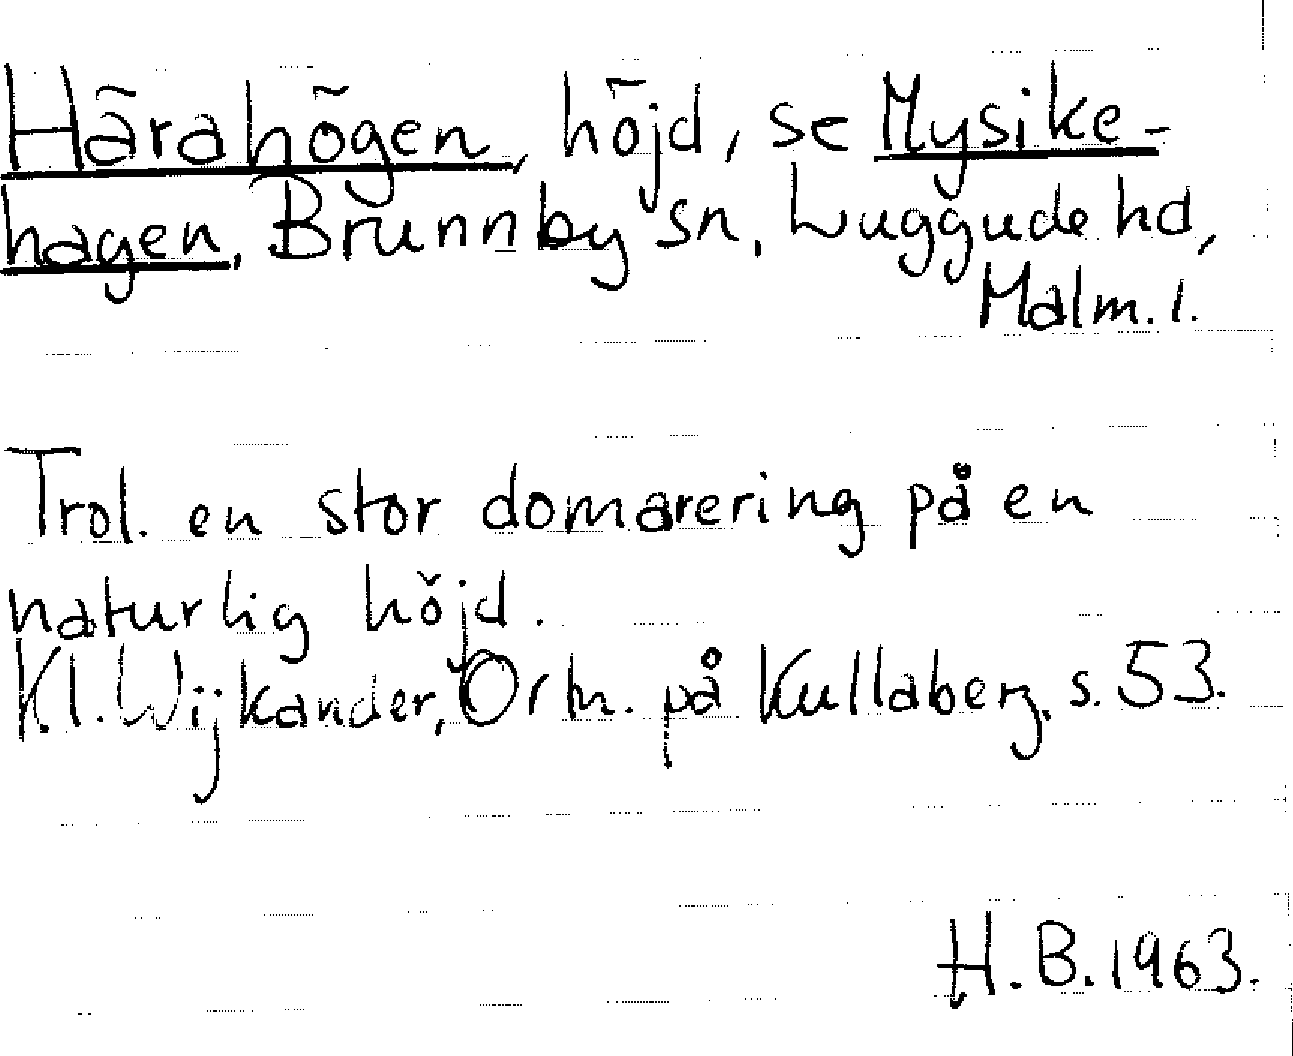 Härahögen, höjd, se Mysike-
hagen, Brunnby sn, Luggude hd,
Malm. l.
Trol. en stor domarering på en
naturlig höjd.
Kl. Wijkander, Ortn. på Kullaberg, s. 53.
H. B. 1963.